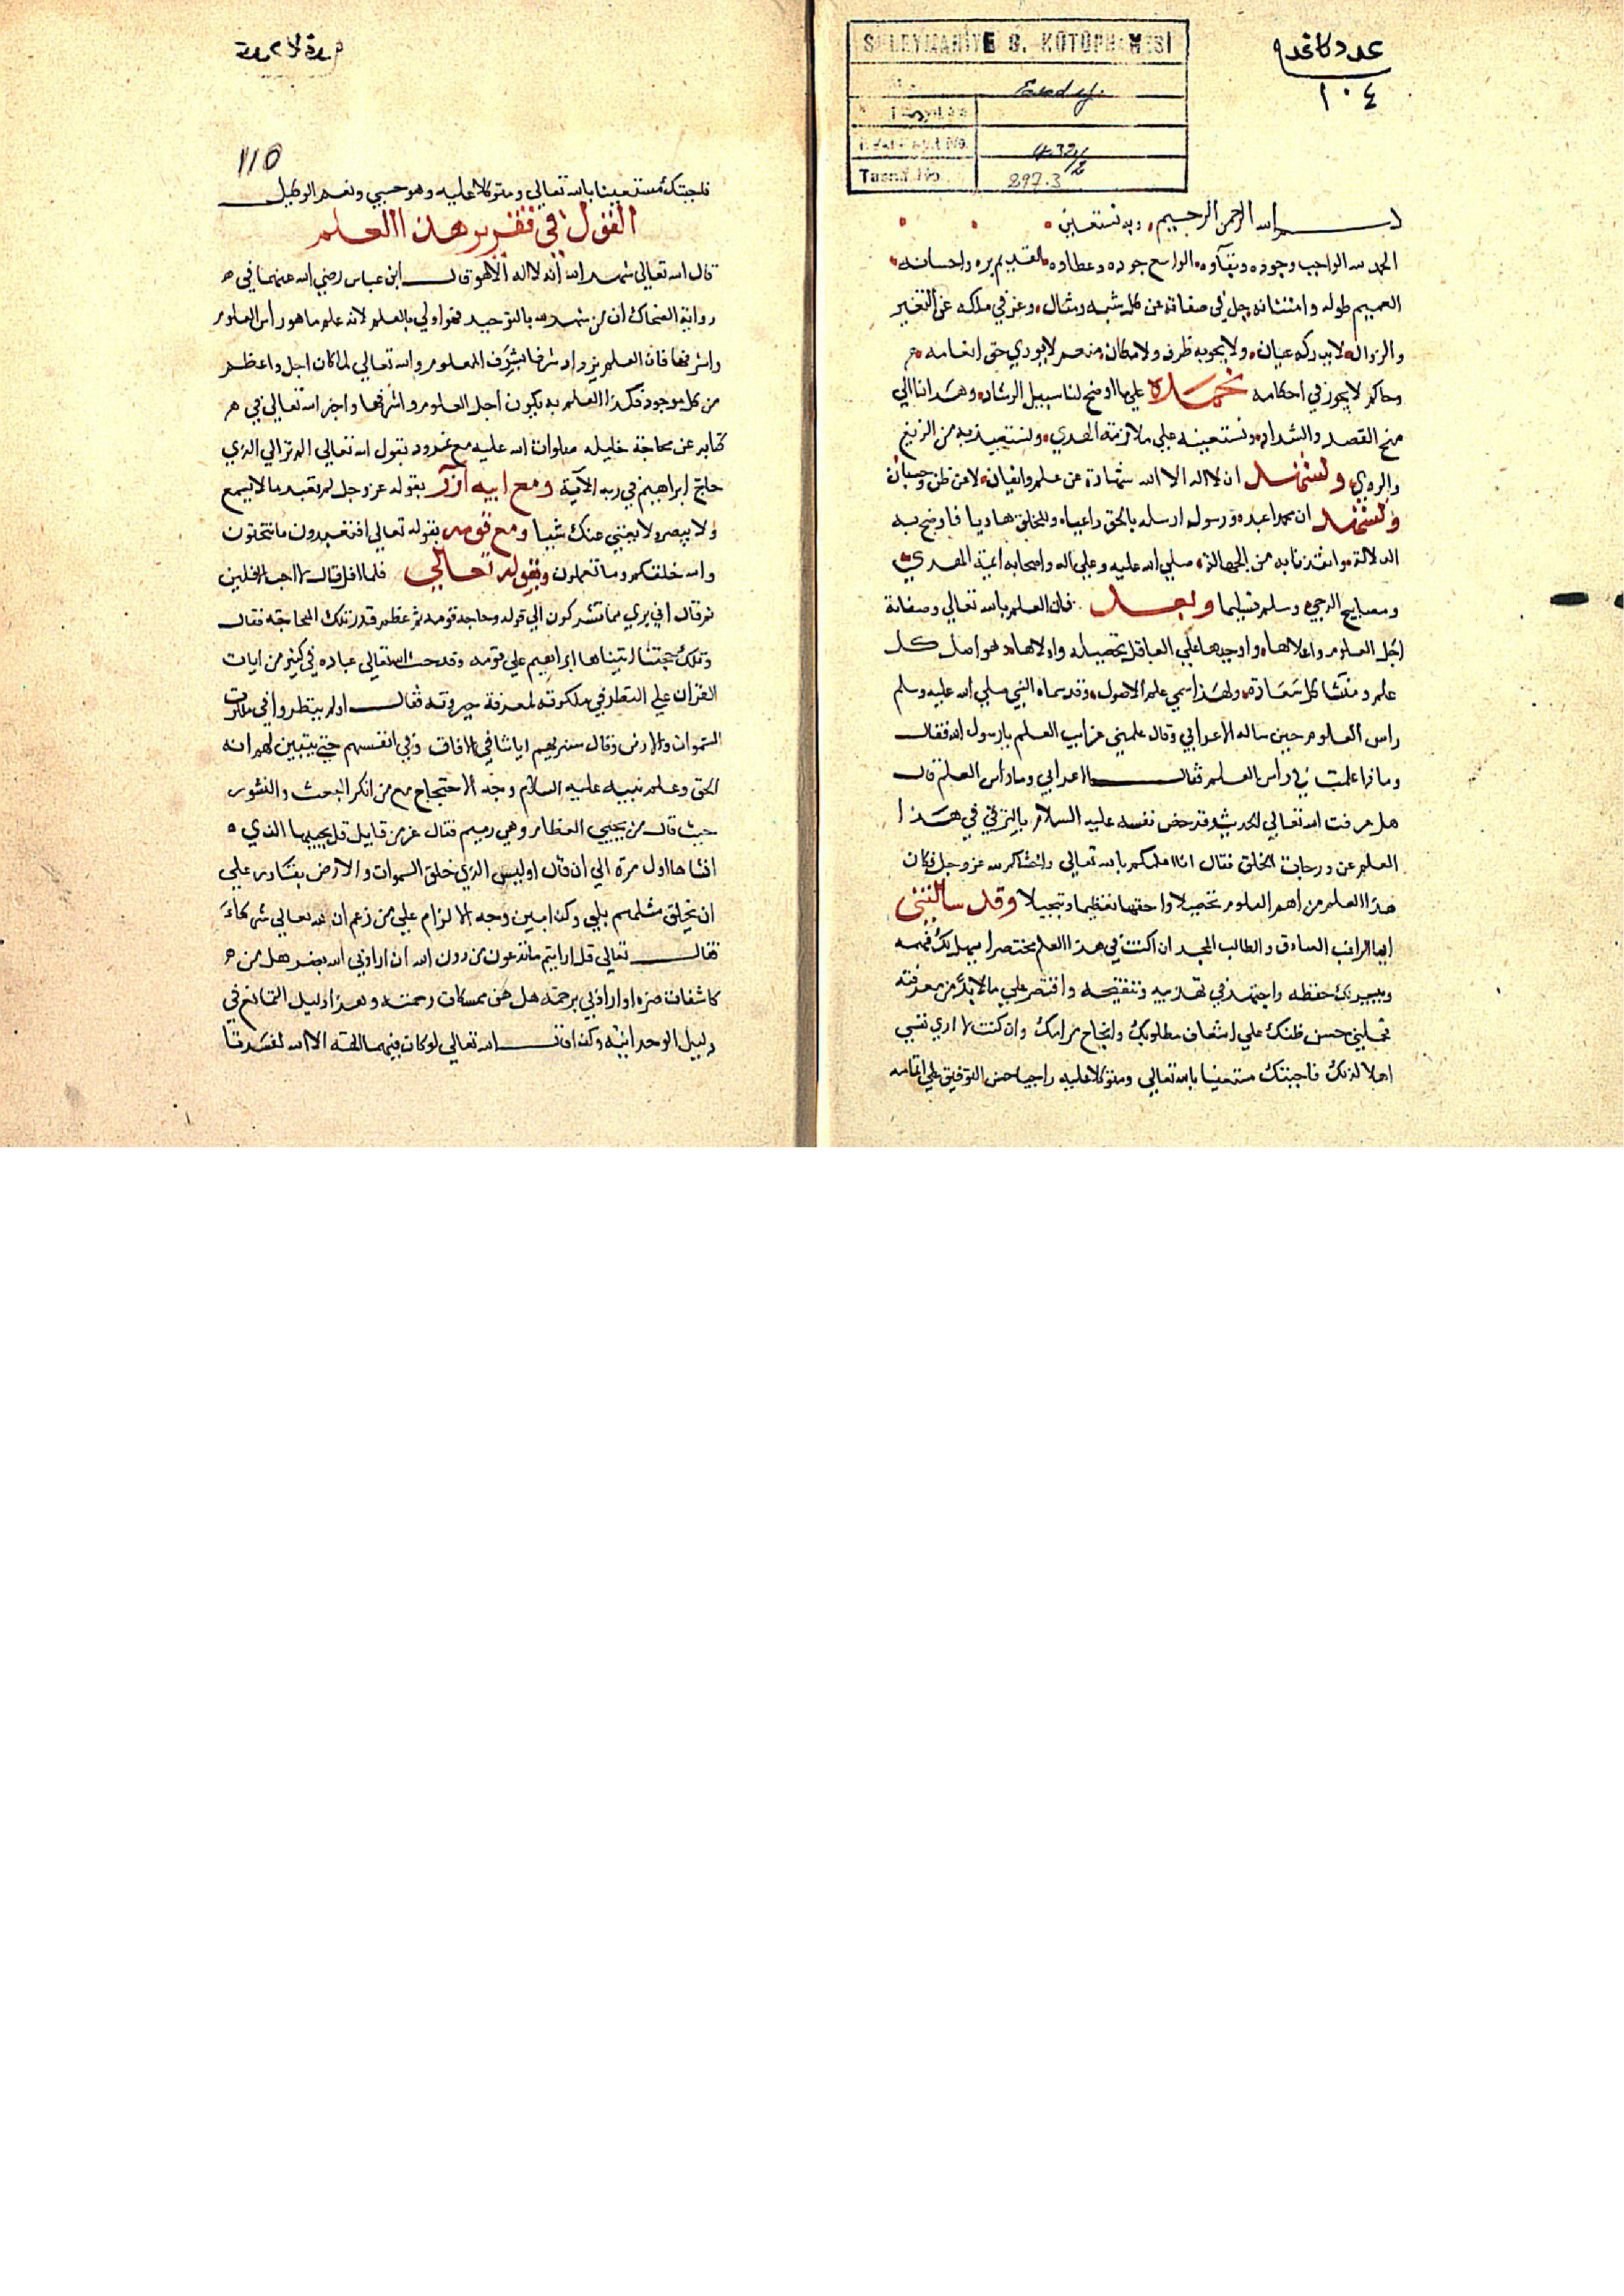 عدد كاغد
١٠٤
SÜLEYMANİYE G. KÜTÜPHANESİ
Esad ef.
Kayıt No.
297.3
Tasnif No.
بسم الله الرحمن الرحيم وبه نستعين
الحمد لله الواجب وجوده وبقآوه الواسع جوده وعطاوه القديم بره واحسانه
العميم طوله وامتنانه جل في صفاته عن كل شبه ومثال وعز في ملكه عن التغير
والزوال لا يدركه عيان ولا يحويه ظرف ولا مكان منعم لا يودي حق انعامه
وحاكم لا يجوز في احكامه نحمده علي ما اوضح لنا سبيل الرشاد وهدانا الي
منح القصد والسداد ونستعينه علي ملازمة الهدي ونستعيذ به من الزيغ
والردي ونشهد ان لا اله الا الله شهادة عن علم واتقان لا عن ظن وحسبان
ونشهد ان محمدا عبده ورسوله ارسله بالحق داعيا وللخلق هاديا فاوضح به
الدلالة وانقذنا به من الجهالة صلي الله عليه وعلي اله واصحابه ائمة الهدي
ومصابيح الدجي وسلم تسليما وبعد فان العلم بالله تعالي وصفاته
اجل العلوم واعلاها واوجبها علي العاقل تحصيله واولاها وهو اصل كل
علم ومنشا كل سعادة ولهذا سمي علم الاصول وقد سماه النبي صلي الله عليه وسلم
راس العلوم حين ساله الاعرابي وقال علمني غرايب العلم يا رسول الله فقال
وما ذا علمت في راس العلم فقال الاعرابي وما راس العلم قال
هل عرفت الله تعالي الحديث وقد خص نفسه عليه السلام بالترقي في هذا
العلم عن درجات الخلق فقال انا اعلمكم بالله تعالي واخشاكم لله عز وجل فكان
هذا العلم من اهم العلوم تحصيلا واحقها تعظيما وتبجيلا وقد سالتني
ايها الراغب الصادق والطالب المجد ان اكتب في هذا العلم مختصرا يسهل بك فهمه
ويتيسر بك حفظه واجتهد في تهذيبه وتنقيحه واقتصر علي ما لا بد من معرفته
فحملني حسن ظنك علي اسعاف مطلوبك وانجاح مرامك وان كنت لا اري نفسي
اهلا لذلك فاجبتك مستعينا بالله تعالي ومتوكلا عليه راجيا حسن التوفيق علي اتمامه
110
فاجبتك مستعينا بالله تعالي ومتوكلا عليه وهو حسبي ونعم الوكيل
القول في تقرير هذا العلم
قال الله تعالي شهد الله انه لا اله الا هو قال ابن عباس رضي الله عنهما في
رواية الضحاك ان من شهد لله بالتوحيد فهو اولي بالعلم لانه علم ما هو راس العلوم
واشرفها فان العلم يزداد شرفا بشرف المعلوم والله تعالي لما كان اجل واعظم
من كل موجود فكذا العلم به يكون اجل العلوم واشرفها واخبر الله تعالي في
كتابه عن محاجة خليله صلوات الله عليه مع نمرود بقول الله تعالي الم تر الي الذي
حاج ابراهيم في ربه الآية ومع ابيه ازر بقوله عز وجل لم تعبد ما لا يسمع
ولا يبصر ولا يغني عنك شيا ومع قومه بقوله تعالي افتعبدون ما تنحتون
والله خلقكم وما تعملون وبقوله تعالي فلما افل قال لا احب الافلين
ثم قال اني بري مما تشركون الي قوله وحاجه قومه ثم عظم قدر تلك المحاجة فقال
وتلك حجتنا اتيناها ابراهيم علي قومه وقد حث الله تعالي عباده في كثير من ايات
القران علي النظر في ملكوته لمعرفة جبروته فقال اولم ينظروا في ملكوت
السموات والارض وقال سنريهم اياتنا في الافاق وفي انفسهم حتي يتبين لهم انه
الحق وعلم نبيه عليه السلام وجه الاحتجاج مع من انكر البعث والنشور
حيث قال من يحيي العظام وهي رميم فقال عز من قايل قل يحييها الذي
انشاها اول مرة الي ان قال اوليس الذي خلق السموات والارض بقادر علي
ان يخلق مثلهم بلي وكذا بين وجه الالزام علي من زعم ان لله تعالي شركاء
فقال تعالي قل ارايتم ما تدعون من دون الله ان ارادني الله بضر هل من
كاشفات ضره او ارادني برحمة هل هن ممسكات رحمته وهذا دليل التمانع في
دليل الوحدانية وكذا قال الله تعالي لو كان فيهما الهة الا الله لفسدتا